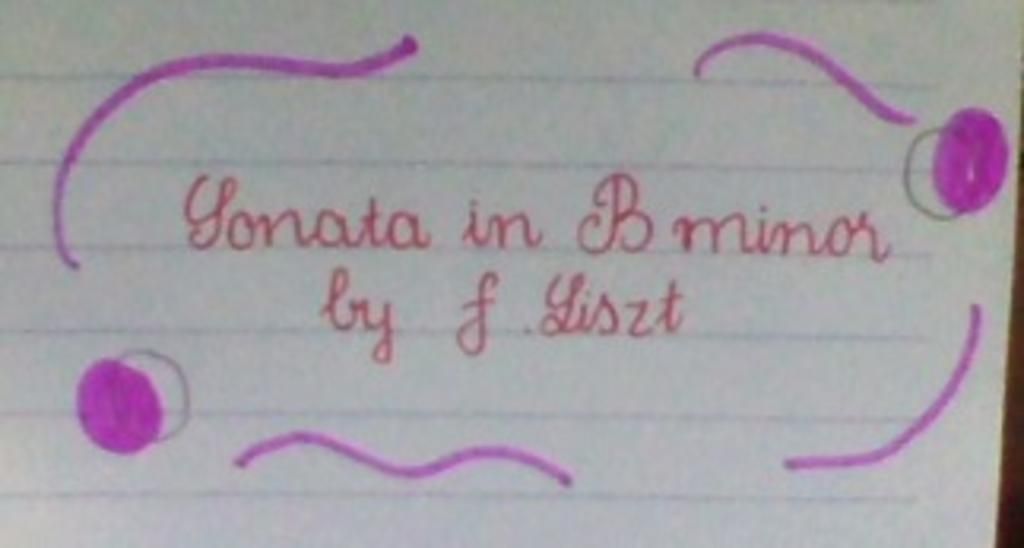 Sonata in B minor
by f. Liszt